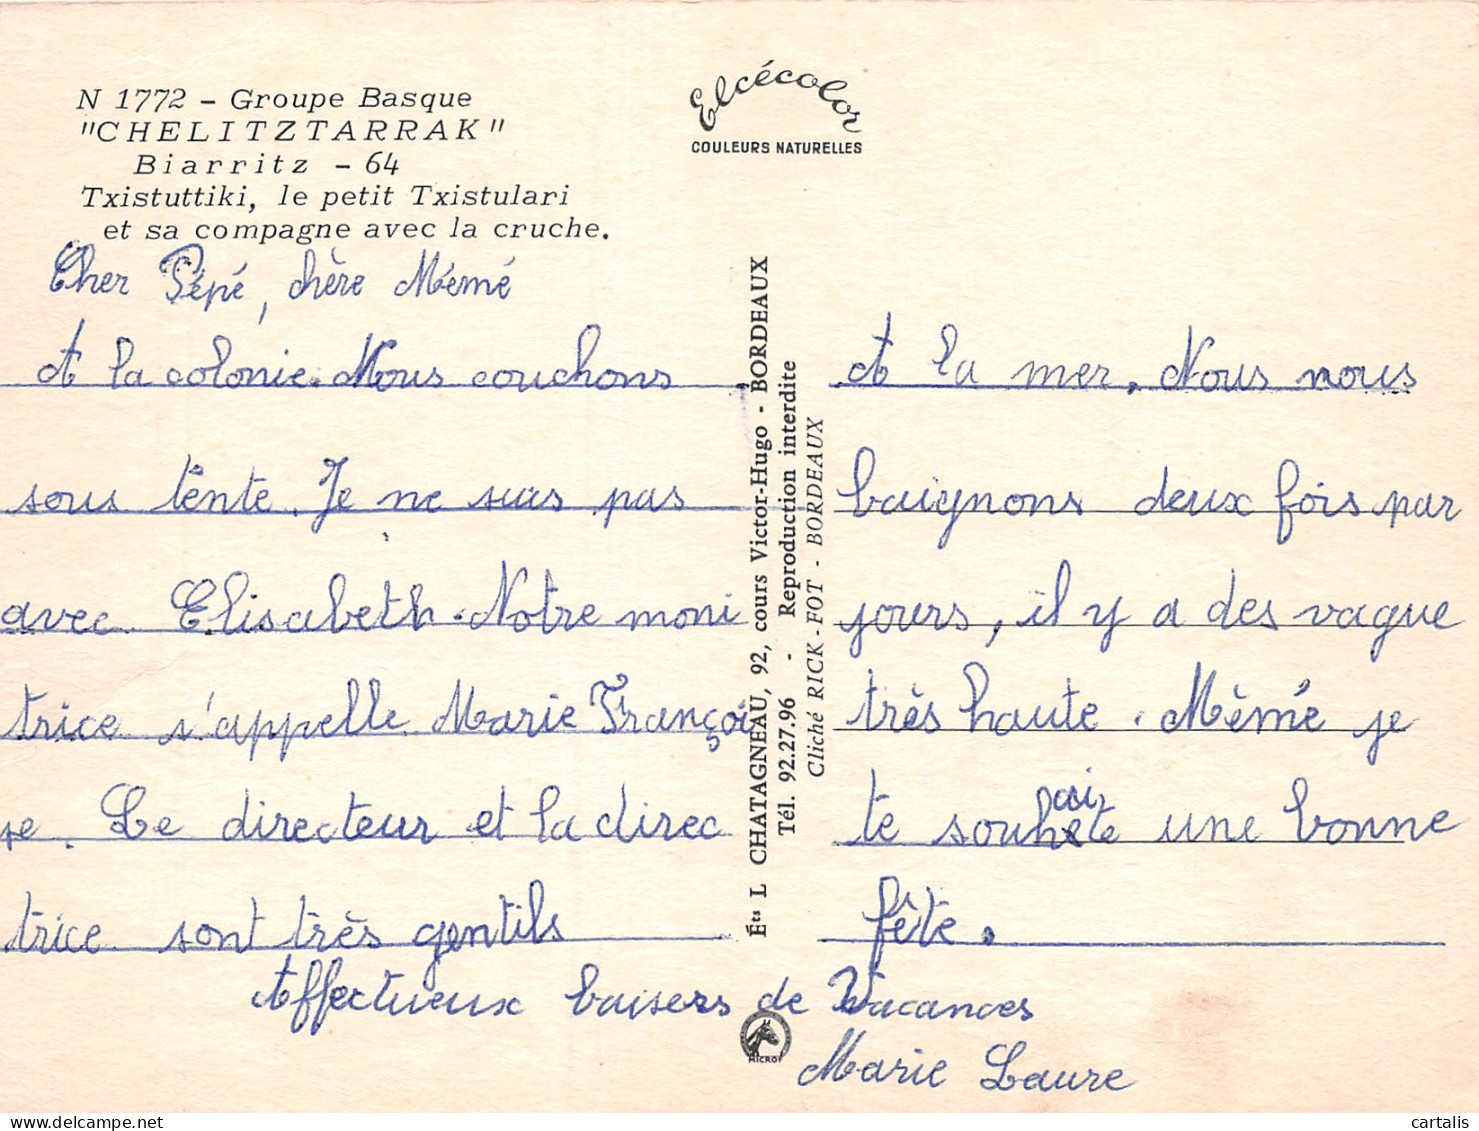 N 1772 - Groupe Basque
"CHELITZTARRAK"
Biarritz - 64
Txistuttiki, le petit Txistulari
et sa compagne avec la cruche.
Elcécolor
COULEURS NATURELLES
Cher Pépé, chère Mémé
A la colonie. Nous couchons
sous tente. Je ne suis pas
avec Elisabeth. Notre moni
trice s'appelle Marie Françoi
se. Le directeur et la direc
trice sont très gentils
Éts L CHATAGNEAU, 92, cours Victor-Hugo - BORDEAUX
Tél. 92.27.96 - Reproduction interdite
Cliché RICK-FOT - BORDEAUX
A la mer. Nous nous
baignons deux fois par
jours, il y a des vague
très haute. Mémé je
te souhaite une bonne
fête.
Affectueux baisers de Vacances
MICROF
Marie Laure
cartalis
www.delcampe.net